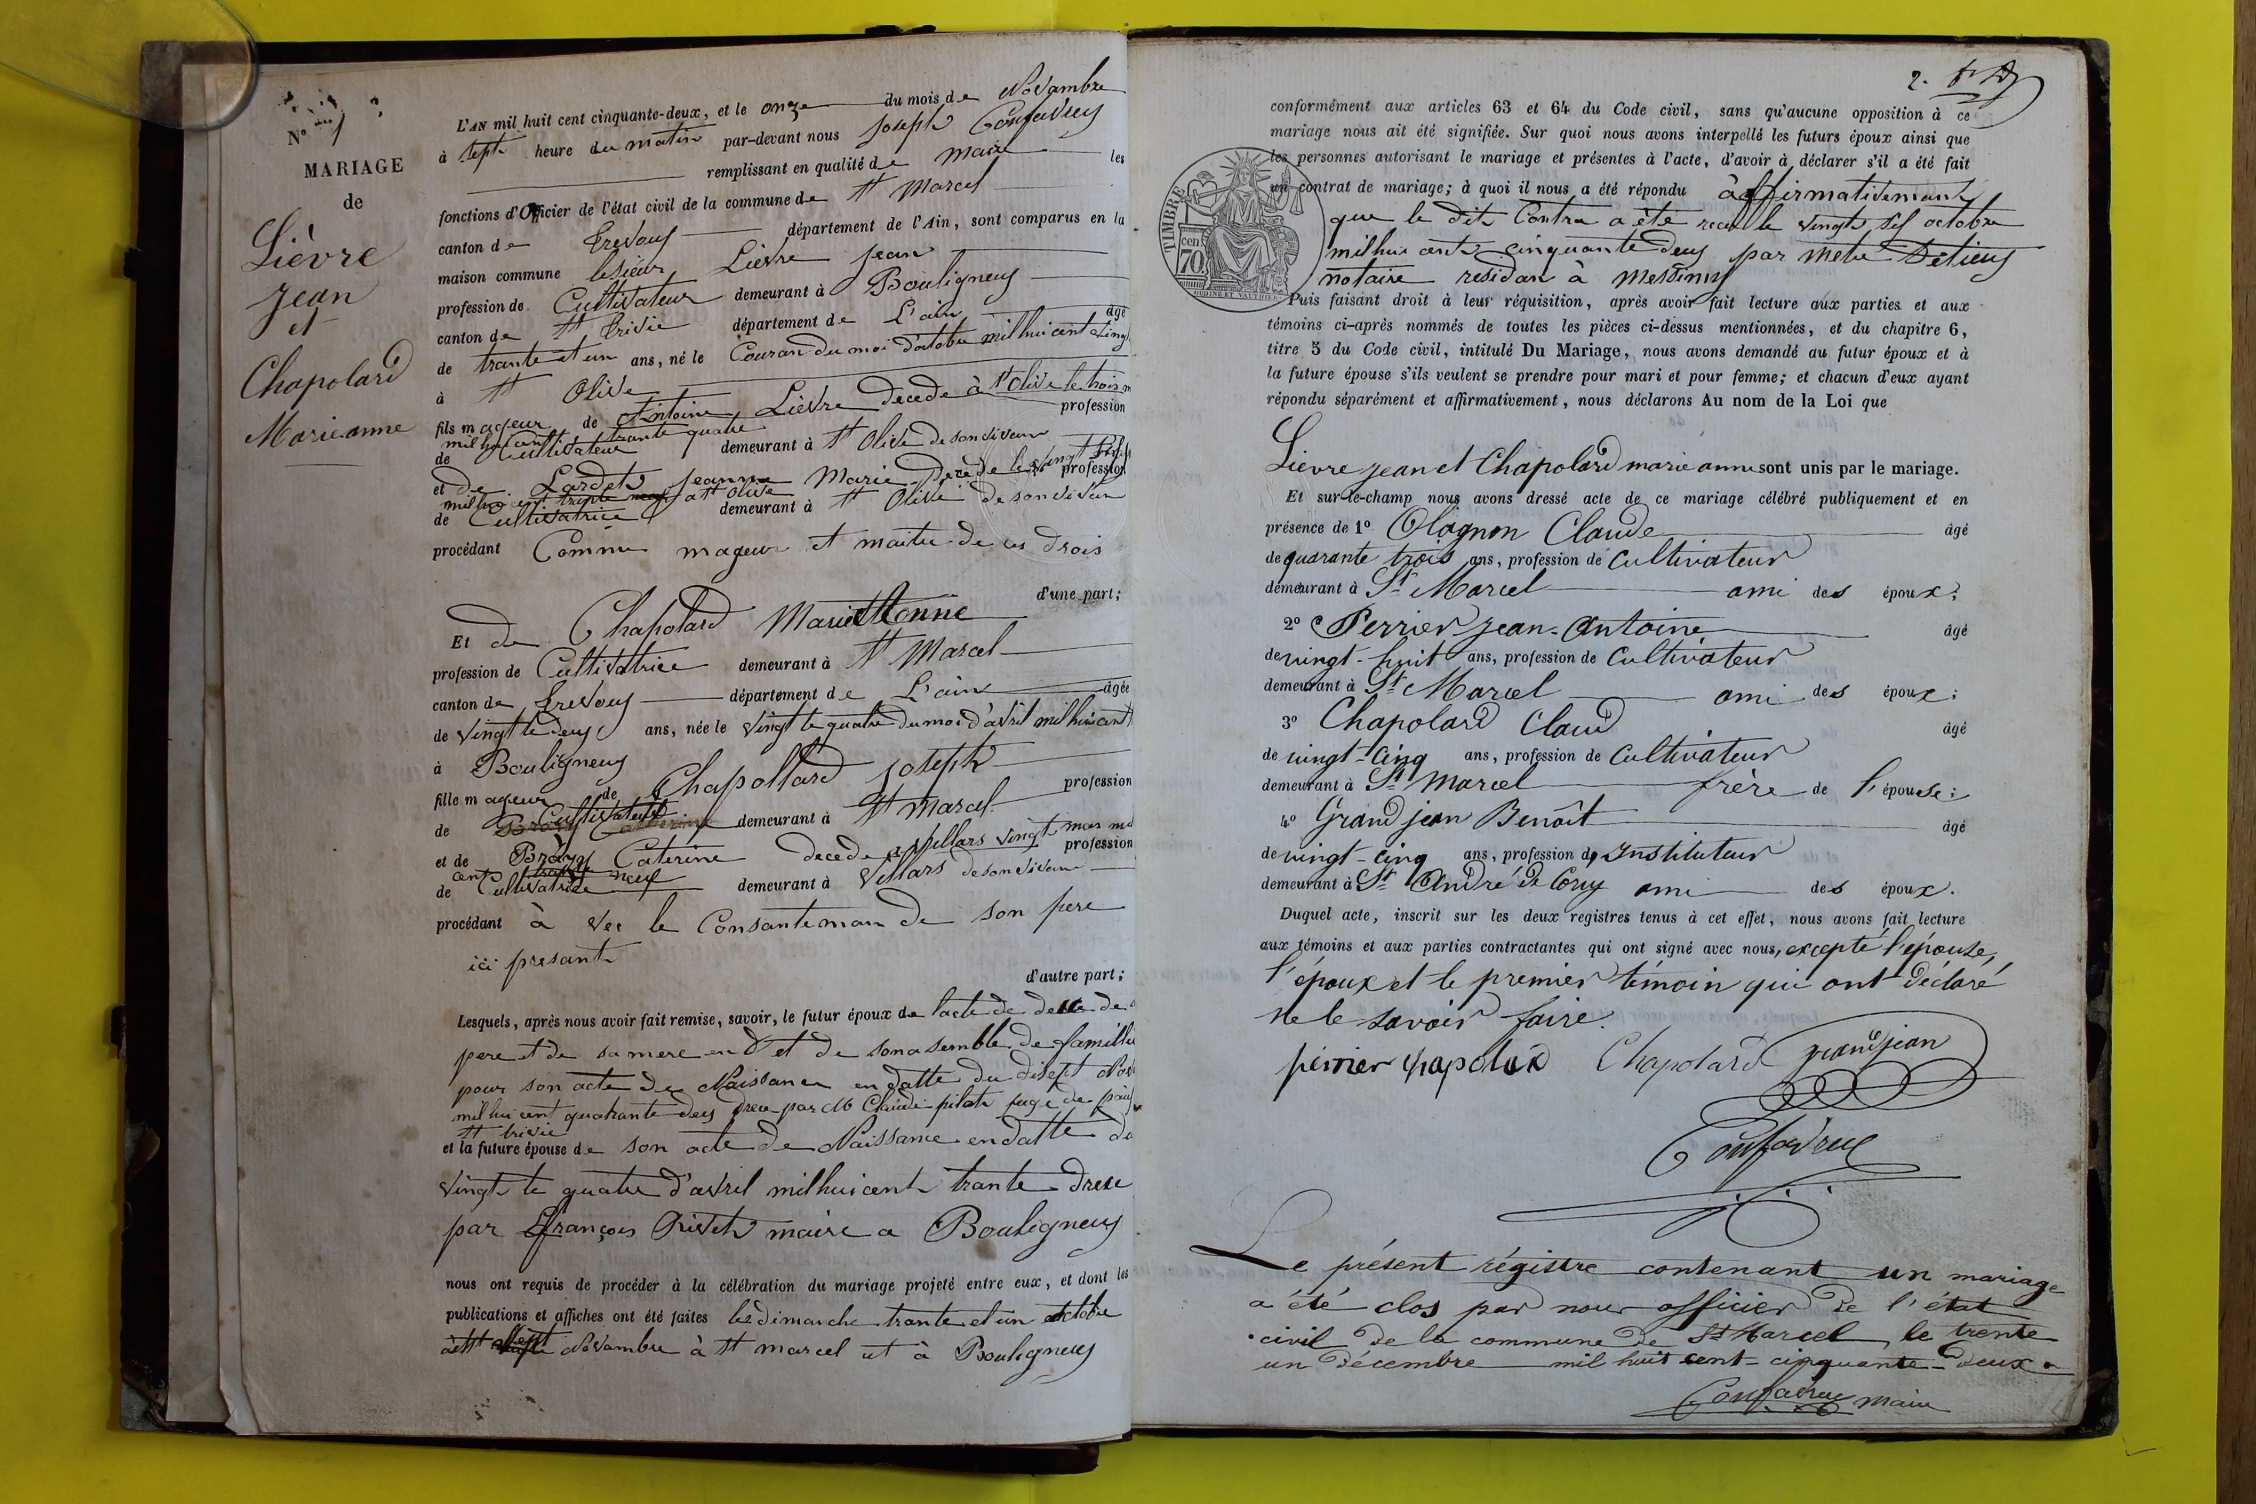 N° 1
MARIAGE
de
Lièvre
Jean
et
Chapolard
Marieanne
L'AN mil huit cent cinquante-deux, et le onze du mois de Novambre
à sept heure du matin par-devant nous Joseph Confavreux
remplissant en qualité de maire les
fonctions d'Officier de l'état civil de la commune de St Marcel
canton de Trevoux département de l'Ain, sont comparus en la
maison commune le sieur Lièvre Jean
profession de Cultivateur demeurant à Bouligneux
canton de St Trivié département de L'ain âgé
de trante et un ans, né le Couran du moi d'octobre mil huicent vingt
à St Olive
fils mageur de Antoine Lièvre decede à St Olive le trois
mil huicent trante quatre profession
de Cultivateur demeurant à St Olive de son vivan
et de Lardet Jeanne Marie decede le vingt
mil huicent trante neuf a St Olive profession
de Cultivatrice demeurant à St Olive de son vivan
procédant Comme mageur et maitre de ces drois
d'une part;
Et de Chapolard Marie Anne
profession de Cultivatrice demeurant à St Marcel
canton de Trevoux département de L'ain âgée
de vingt te deux ans, née le vingt te quatre du moi d'avril mil huicent
à Bouligneux
fille mageur de Chapollard Joseph profession
de Cultivateur demeurant à St Marcel
et de Brazy Caterine decede a Villars vingt mars mil
cent neuf profession
de Cultivatrice demeurant à Villars de son vivan
procédant à vec le Consanteman de son pere
ici presant
d'autre part;
Lesquels, après nous avoir fait remise, savoir, le futur époux de l'acte de de
pere et de sa mere et de son asemble de famillie
pour son acte de Naissance en datte du disept Nov
mil hui cent quarante deux dreu par M Claude pilat juge de paix
St trivié
et la future épouse de son acte de Naissance en datte du
vingt te quatre d'avril mil huicent trante drece
par François Privet maire a Bouligneux
nous ont requis de procéder à la célébration du mariage projeté entre eux, et dont les
publications et affiches ont été faites les dimanche trante et un octobre
et sept Novambre à St marcel et à Bouligneux
2.
conformément aux articles 63 et 64 du Code civil, sans qu'aucune opposition à ce
mariage nous ait été signifiée. Sur quoi nous avons interpellé les futurs époux ainsi que
les personnes autorisant le mariage et présentes à l'acte, d'avoir à déclarer s'il a été fait
un contrat de mariage; à quoi il nous a été répondu affirmativemant
que le dit Contra a été recu le vingt sif octobre
mil hui cent cinquante deux par metre
notaire residan à Messimy
TIMBRE
70 cen
OUDINE ET VAUTHIER
Puis faisant droit à leur réquisition, après avoir fait lecture aux parties et aux
témoins ci-après nommés de toutes les pièces ci-dessus mentionnées, et du chapitre 6,
titre 5 du Code civil, intitulé Du Mariage, nous avons demandé au futur époux et à
la future épouse s'ils veulent se prendre pour mari et pour femme; et chacun d'eux ayant
répondu séparément et affirmativement, nous déclarons Au nom de la Loi que
Lièvre Jean et Chapolard marie anne sont unis par le mariage.
Et sur-le-champ nous avons dressé acte de ce mariage célébré publiquement et en
présence de 1° Olagnon Claude âgé
de quarante trois ans, profession de Cultivateur
demeurant à St Marcel ami des époux;
2° Perrier Jean-Antoine âgé
de vingt-huit ans, profession de Cultivateur
demeurant à St Marcel ami des époux;
3° Chapolard Claud âgé
de vingt-cinq ans, profession de Cultivateur
demeurant à St Marcel frère de l'épouse;
4° Grandjean Benoît âgé
de vingt-cinq ans, profession d'Instituteur
demeurant à St André de Corcy ami des époux.
Duquel acte, inscrit sur les deux registres tenus à cet effet, nous avons fait lecture
aux témoins et aux parties contractantes qui ont signé avec nous, excepté l'épouse,
l'époux et le premier témoin qui ont déclaré
ne le savoir faire.
perrier chapolard Chapolard grandjean
Confavreux
Le présent régistre contenant un mariage
a été clos par nous officier de l'état
civil de la commune de St Marcel, le trente
un décembre mil huit cent-cinquante-deux
Confavreux maire